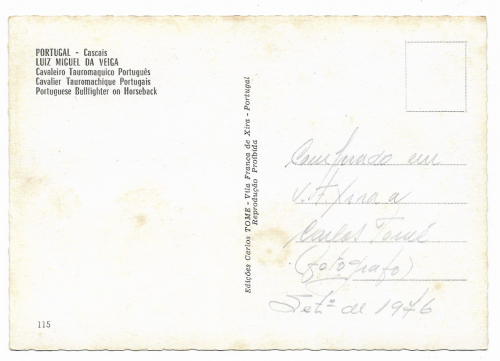 PORTUGAL - Cascais
LUIZ MIGUEL DA VEIGA
Cavaleiro Tauromaquico Português
Cavalier Tauromachique Portugais
Portuguese Bullfighter on Horseback
Edições Carlos TOMÉ - Vila Franca de Xira - Portugal
Reprodução Proibida
Comprado em
V. F. Xira a
Carlos Tomé
(fotógrafo)
Setº de 1976
115